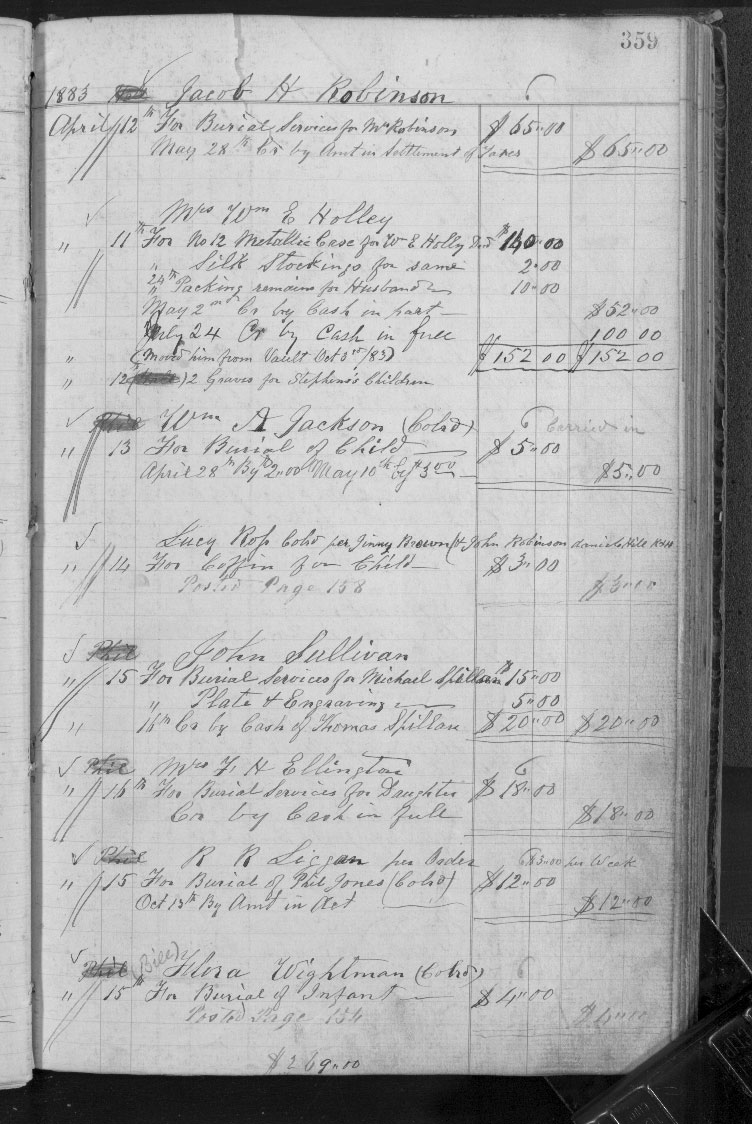 359
1883 Jacob H Robinson
April 12th For Burial Services for Mr Robinson $65.00
May 28th Cr by Amt in Settlement of Taxes $65.00
Mrs Wm E Holley
" 11th For No 12 Metallic Case for W E Holly Decd $140.00
" Silk Stockings for same 2.00
24th Packing remains for Husband 10.00
May 2nd Cr by Cash in part $52.00
July 24 Cr by Cash in full 100 00
" (Moved him from Vault Oct 3rd/83) $152 00 $152 00
" 12th 2 Graves for Stephens's Children
Phil Wm A Jackson (Colrd) Carried in
" 13 For Burial of Child $5.00
April 28th By 2.00 May 10th By $3.00 $5.00
Lucy Ross Colrd per Jinny Brown & John Robinson daniels Hill
" 14 For Coffin for Child $3.00
Posted Page 158 $3.00
Phil John Sullivan
" 15 For Burial Services for Michael Spillan $15.00
" Plate & Engraving 5.00
" 16th Cr by Cash of Thomas Spillan $20.00 $20.00
Phil Mrs F H Ellington
" 16th For Burial Services for Daughter $18.00
Cr by Cash in full $18.00
Phil R R Liggan per Order $3.00 per Week
" 15 For Burial of Phil Jones (Colrd) $12.00
Oct 15th By Amt in Act $12.00
Phil (Bill) Flora Wightman (Colrd)
" 15th For Burial of Infant $4.00
Posted Page 154 $4.00
$269.00